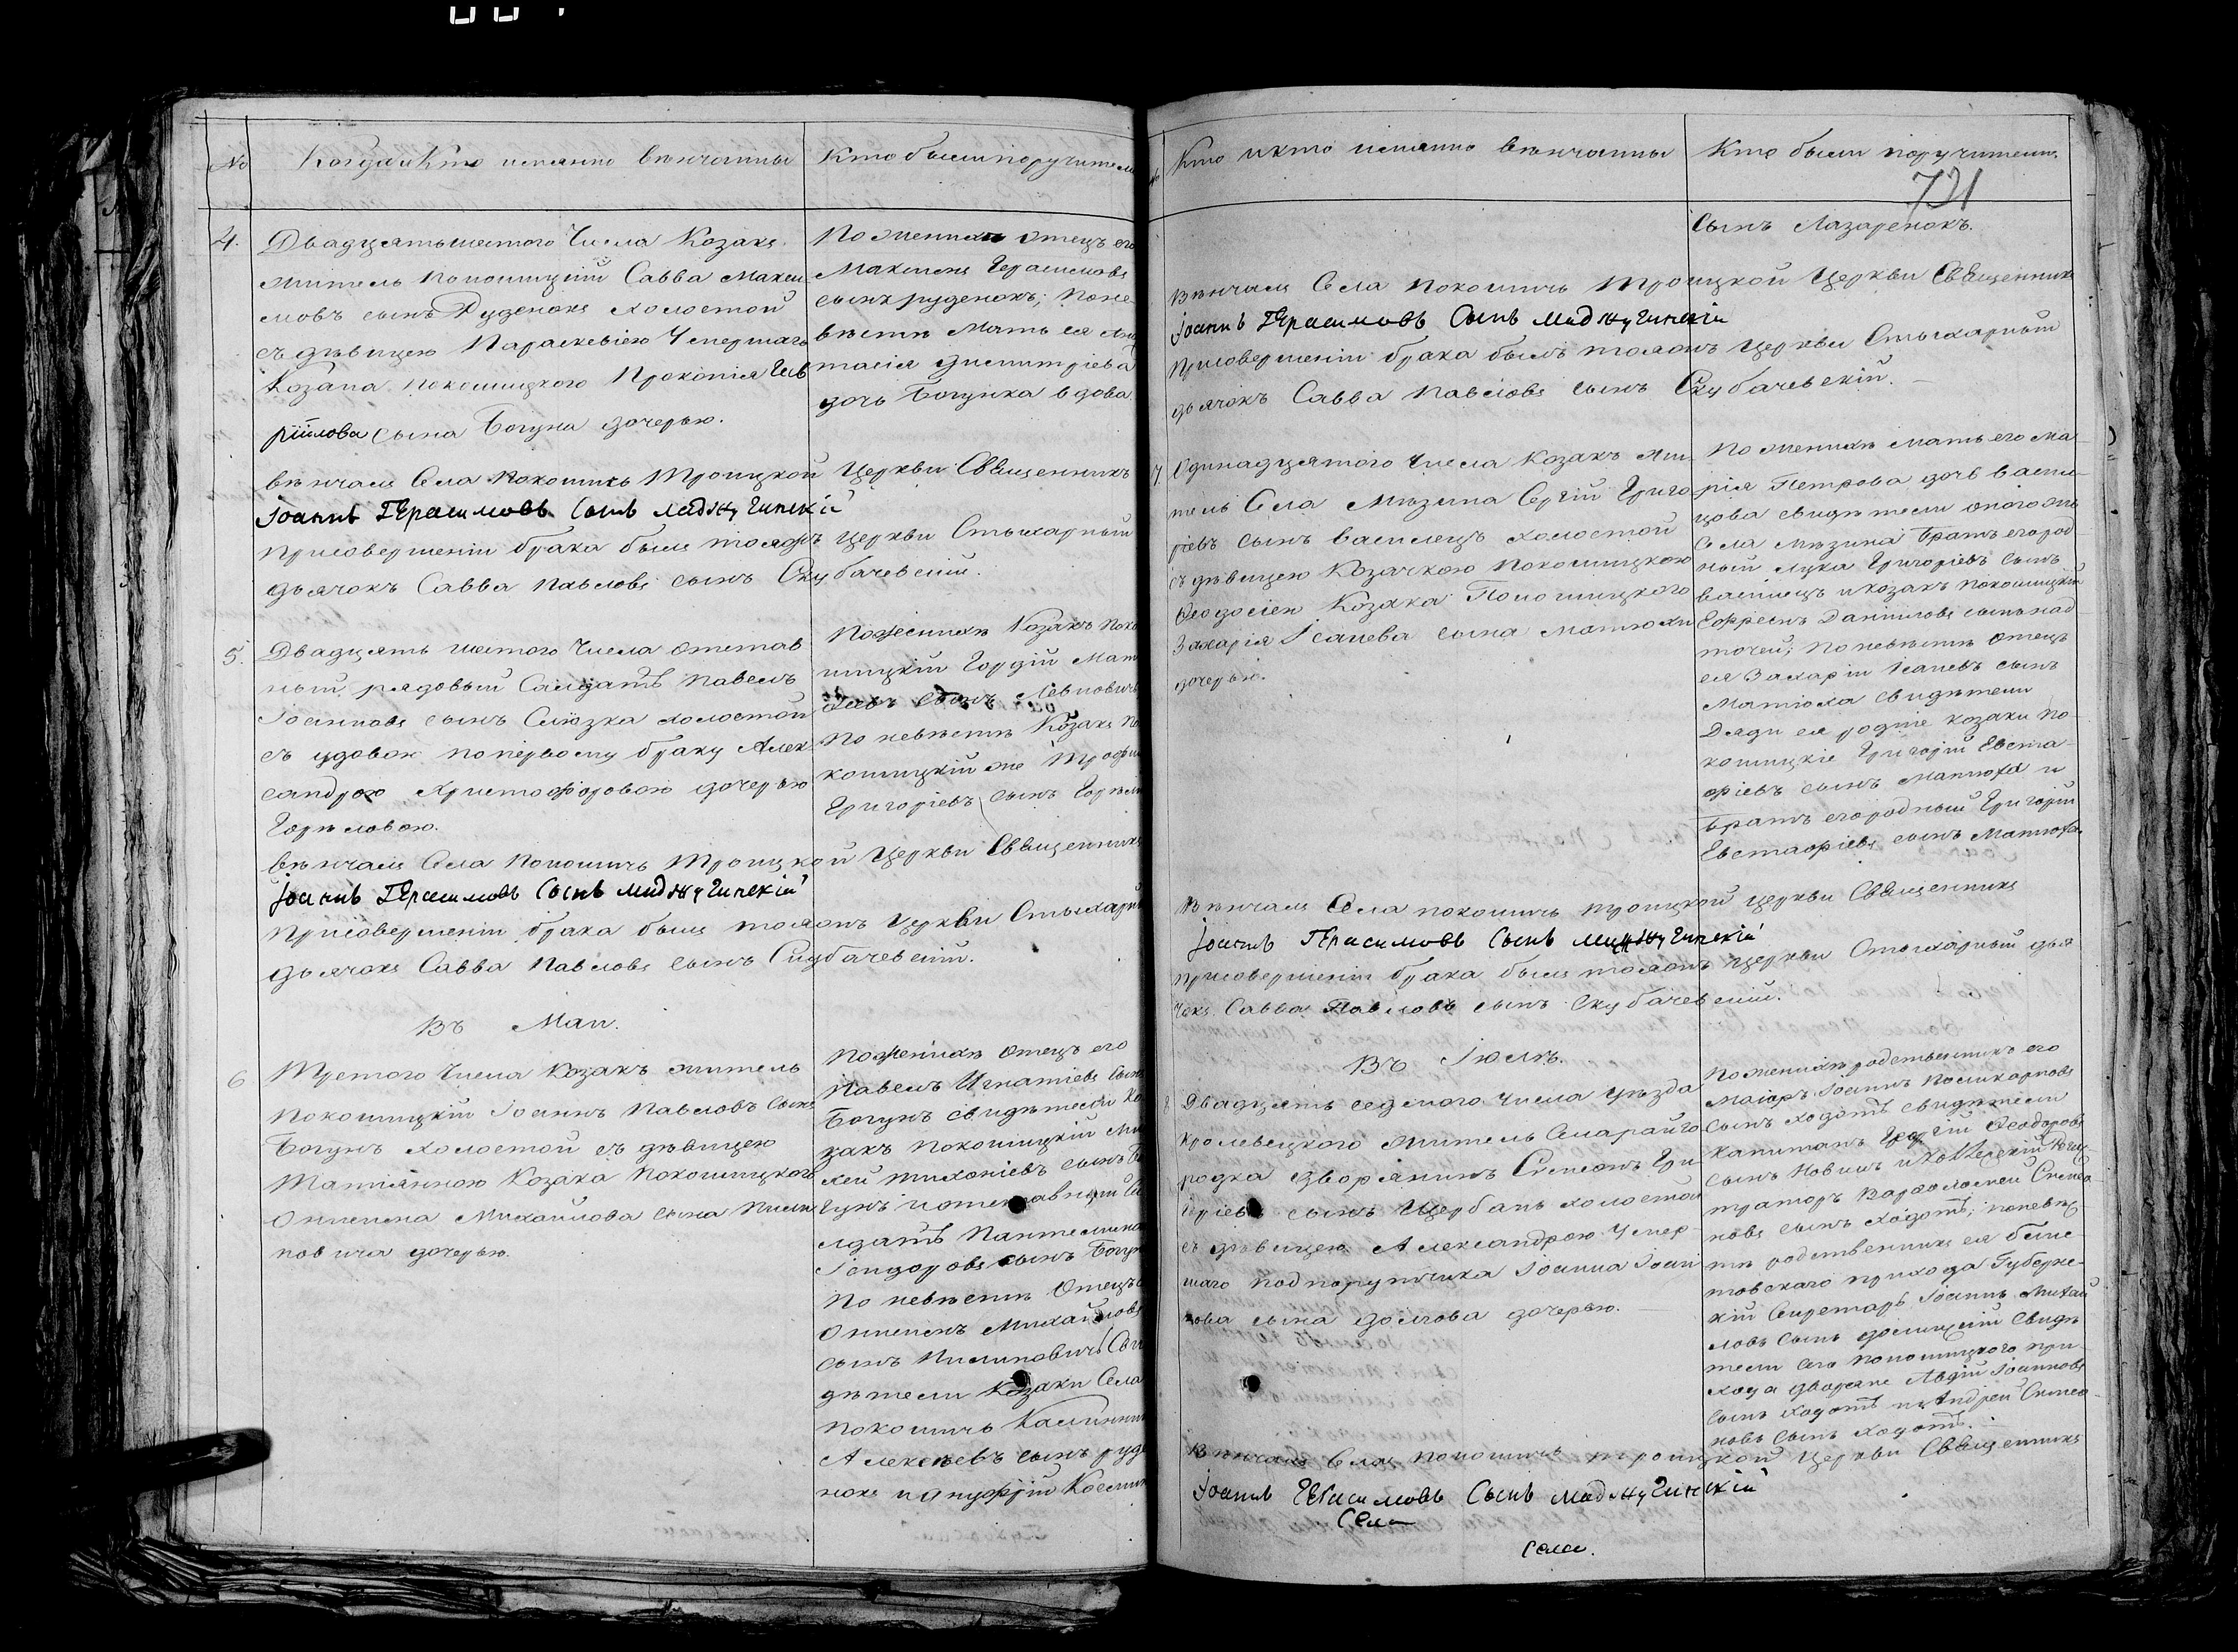 No
Когда и кто именно венчанны
Кто были поручители
4.
Двадцять шестого Числа Козакъ
житель Покошицкій Савва Макси
мовъ сынъ Руденокъ холостой
съ дѣвицею Параскевіею Умершаго
Козака Покошицкого Прокопія Гав
ріилова сына Богуна дочерью.
По женихѣ отецъ его
Максимъ Герасимовъ
сынъ руденокъ; поне
вѣстѣ Мать ея
тасія Димитріева
дочь Богунка вдова
вѣнчалъ Села Покошичь Троицкой Церкви Священникъ
Іоаннъ Герасимовъ Сынъ
Присовершеніи брака былъ тояжъ Церкви Стыхарный
дьячокъ Савва Павловъ сынъ Скубачевскій.
5.
Двадцять шестого Числа отстав
ный рядовый Салдатъ Павелъ
Іоанновъ сынъ Слюзка холостой
съ удовою по первому браку Алек
сандрою Христофоровою дочерью
Горѣловою.
По женихѣ Козакъ Поко
шицкій Гордій Мат
сынъ Левковичь
По невѣстѣ Козакъ По
кошицкій же Трофим
Григоріевъ сынъ Горѣл
вѣнчалъ Села Покошичь Троицкой Церкви Священникъ
Іоаннъ Герасимовъ Сынъ
Присовершеніи брака былъ тояжъ Церкви Стыхарн
дьячокъ Савва Павловъ сынъ Скубачевскій.
Въ Маи.
6
Третого Числа Козакъ житель
Покошицкій Іоаннъ Павловъ сынъ
Богунъ холостой съ дѣвицею
Татіанною Козака Покошицкого
Онисима Михайлова сына Пили
повича дочерью.
По женихѣ Отецъ его
Павелъ Игнатіевъ Сынъ
Богунъ свидѣтели Ко
закъ Покошицкій Ми
хей Тихоніевъ сынъ Бо
гунъ и отставный Са
лдатъ Пантелимо
Ісидоровъ сынъ Богун
По невѣстѣ Отецъ
Онисимъ Михайловъ
сынъ Пилиповичь Сви
дѣтели Козаки Села
Покошичь Калинник
Алексѣевъ сынъ руде
нокъ и Ануфрій Косми
No
Кто икто именно венчанны
Кто были поручители.
721
Сынъ Лазаренокъ.
Вѣнчалъ Села Покошичь Троицкой Церкви Священникъ
Іоаннъ Герасимовъ Сынъ
Присовершеніи брака былъ тояжъ Церкви Стыхарный
дьячокъ Савва Павловъ сынъ Скубачевскій.
7.
Одинадцятого Числа Козакъ жи
тель Села Мѣзина Сергій Григо
ріевъ сынъ Василецъ холостой
съ дѣвицею Козачкою Покошицкою
Феодосіею Козака Покошицкого
Захарія Ісаиева сына Матюхи
дочерью.
По женихѣ мать его Ма
рія Петрова дочь Васил
цова свидѣтели оногожъ
Села Мѣзина Братъ егород
ный Лука Григоріевъ сынъ
Василецъ и козакъ Покошицкій
Ефремъ Даниловъ сынъ над
точей; По невѣстѣ Отецъ
ея Захарій Ісаиевъ сынъ
Матюха свидѣтели
Дяди ея родніе козаки По
кошицкіе Григорій Евста
фіевъ сынъ Матюха и
Братъ егородный Григорій
Евстафіевъ сынъ Матюха.
Вѣнчалъ Села Покошичь Троицкой Церкви Священникъ
Іоаннъ Герасимовъ Сынъ
Присовершеніи брака былъ тояжъ Церкви Стыхарный дья
чокъ Савва Павловъ сынъ Скубачевскій.
Въ Іюлѣ.
8
Двадцять седмого Числа уѣзда
Кролевецкого житель Сларайго
родка Дворянинъ Симеонъ Гри
горіевъ сынъ Щербакъ холостой
съ дѣвицею Александрою Умер
шаго Подпорутчика Іоанна Іоан
нова сына Долгова дочерью.
По женихѣ родственникъ его
Маіоръ Іоаннъ Поликарповъ
сынъ Ходотъ свидѣтели
Капитанъ Георгій Феодоровъ
сынъ Новицъ и Коллежскій Регис
траторъ Варфоломей Симео
новъ сынъ Ходотъ; по невѣс
тѣ родственникъ ея
товскаго прихода Губернс
кій Секретарь Іоаннъ Михай
ловъ сынъ свидѣ
тели сего Покошицкого при
хода дворяне Авдій Іоанновъ
сынъ Ходотъ и Андрей Симео
новъ сынъ Ходотъ.
Вѣнчалъ Села Покошичь Троицкой Церкви Священникъ
Іоаннъ Герасимовъ Сынъ
Села
Села.